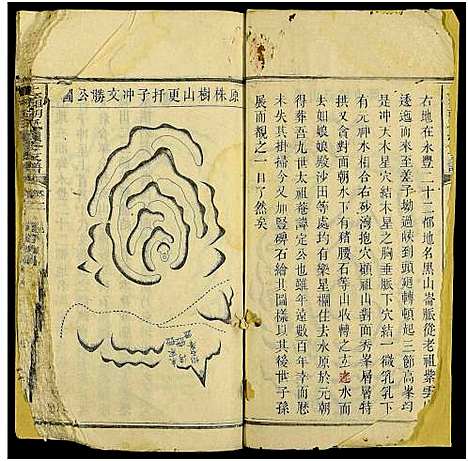 右地在永豐二十二都地名黒山崙脈從老祖紫雲
逶迤而來至差子坳過峽到頭迴轉頓起三節高峯均
是冲天木星穴結木星之胸垂脈下穴結一微乳乳下
有元神水相合左右砂灣抱穴顧祖山對面秀峯層層特
拱又會對面朝水下有豬腰石等山收轉之玄迻水而
去如娘娘殿沙田等處均有梁星欄住去水原於元朝
時葬吾九世太祖菴濤定公也雖年遠數百年幸而歷
末失其掛掃今又加豎碑石繪其圖樣以其後世子孫
展而視之一目了然矣
原株樹山更扦子冲文勝公圖